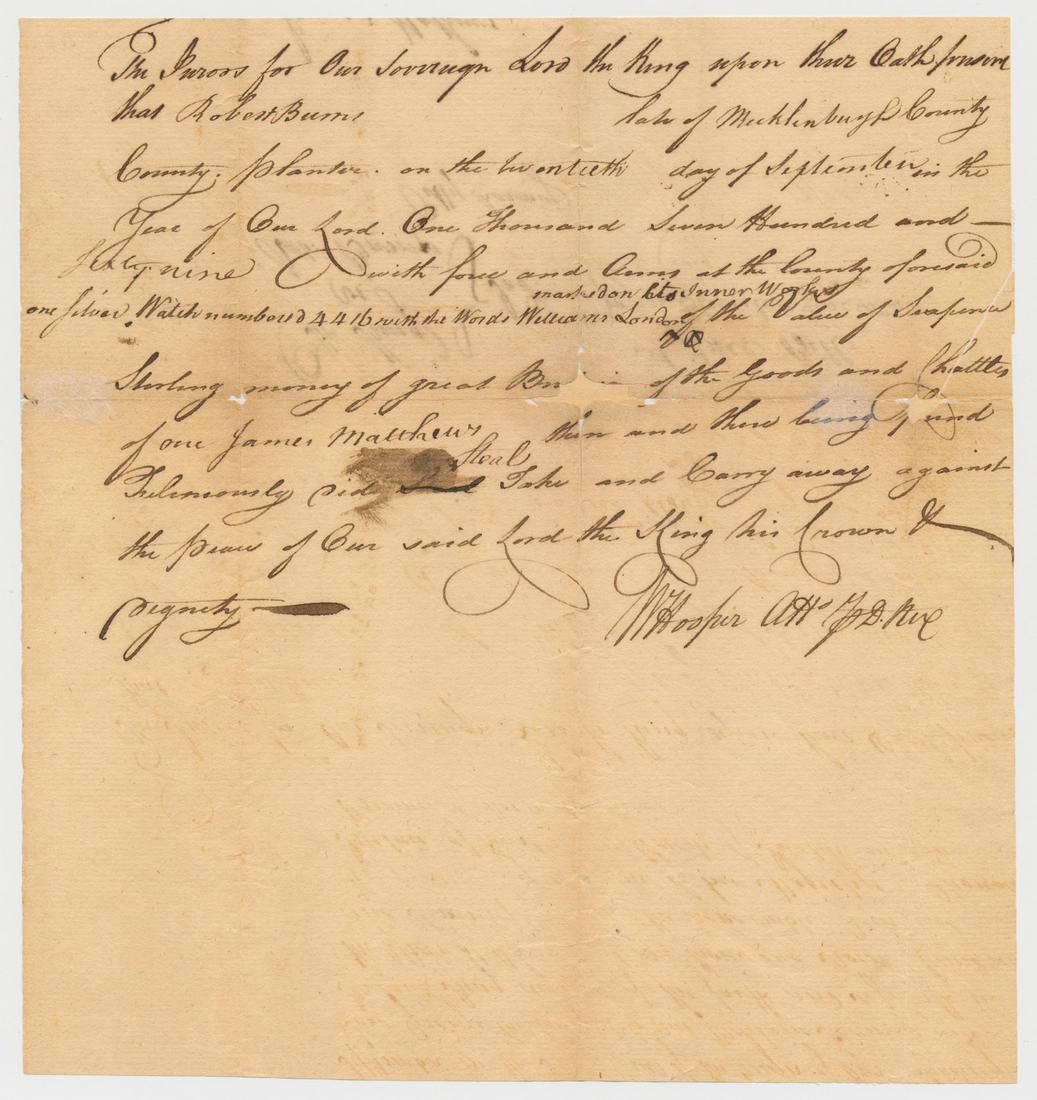 The Jurors for Our Sovereign Lord the King upon their Oath present
that Robert Burns late of Mecklenburgh County
County. Planter. on the twentieth day of September in the
Year of Our Lord. One Thousand Seven Hundred and
sixty nine with force and Arms at the County aforesaid
marked on its Inner Works
one Silver Watch numbered 4416 with the Words Williams London of the Value of Sixpence
Sterling money of great of the Goods and Chattles
of one James Matthews then and there being found
Steal
Feloniously did Take and Carry away against
the peace of Our said Lord the King his Crown &
Dignity
WHooper Atto. D. Rex